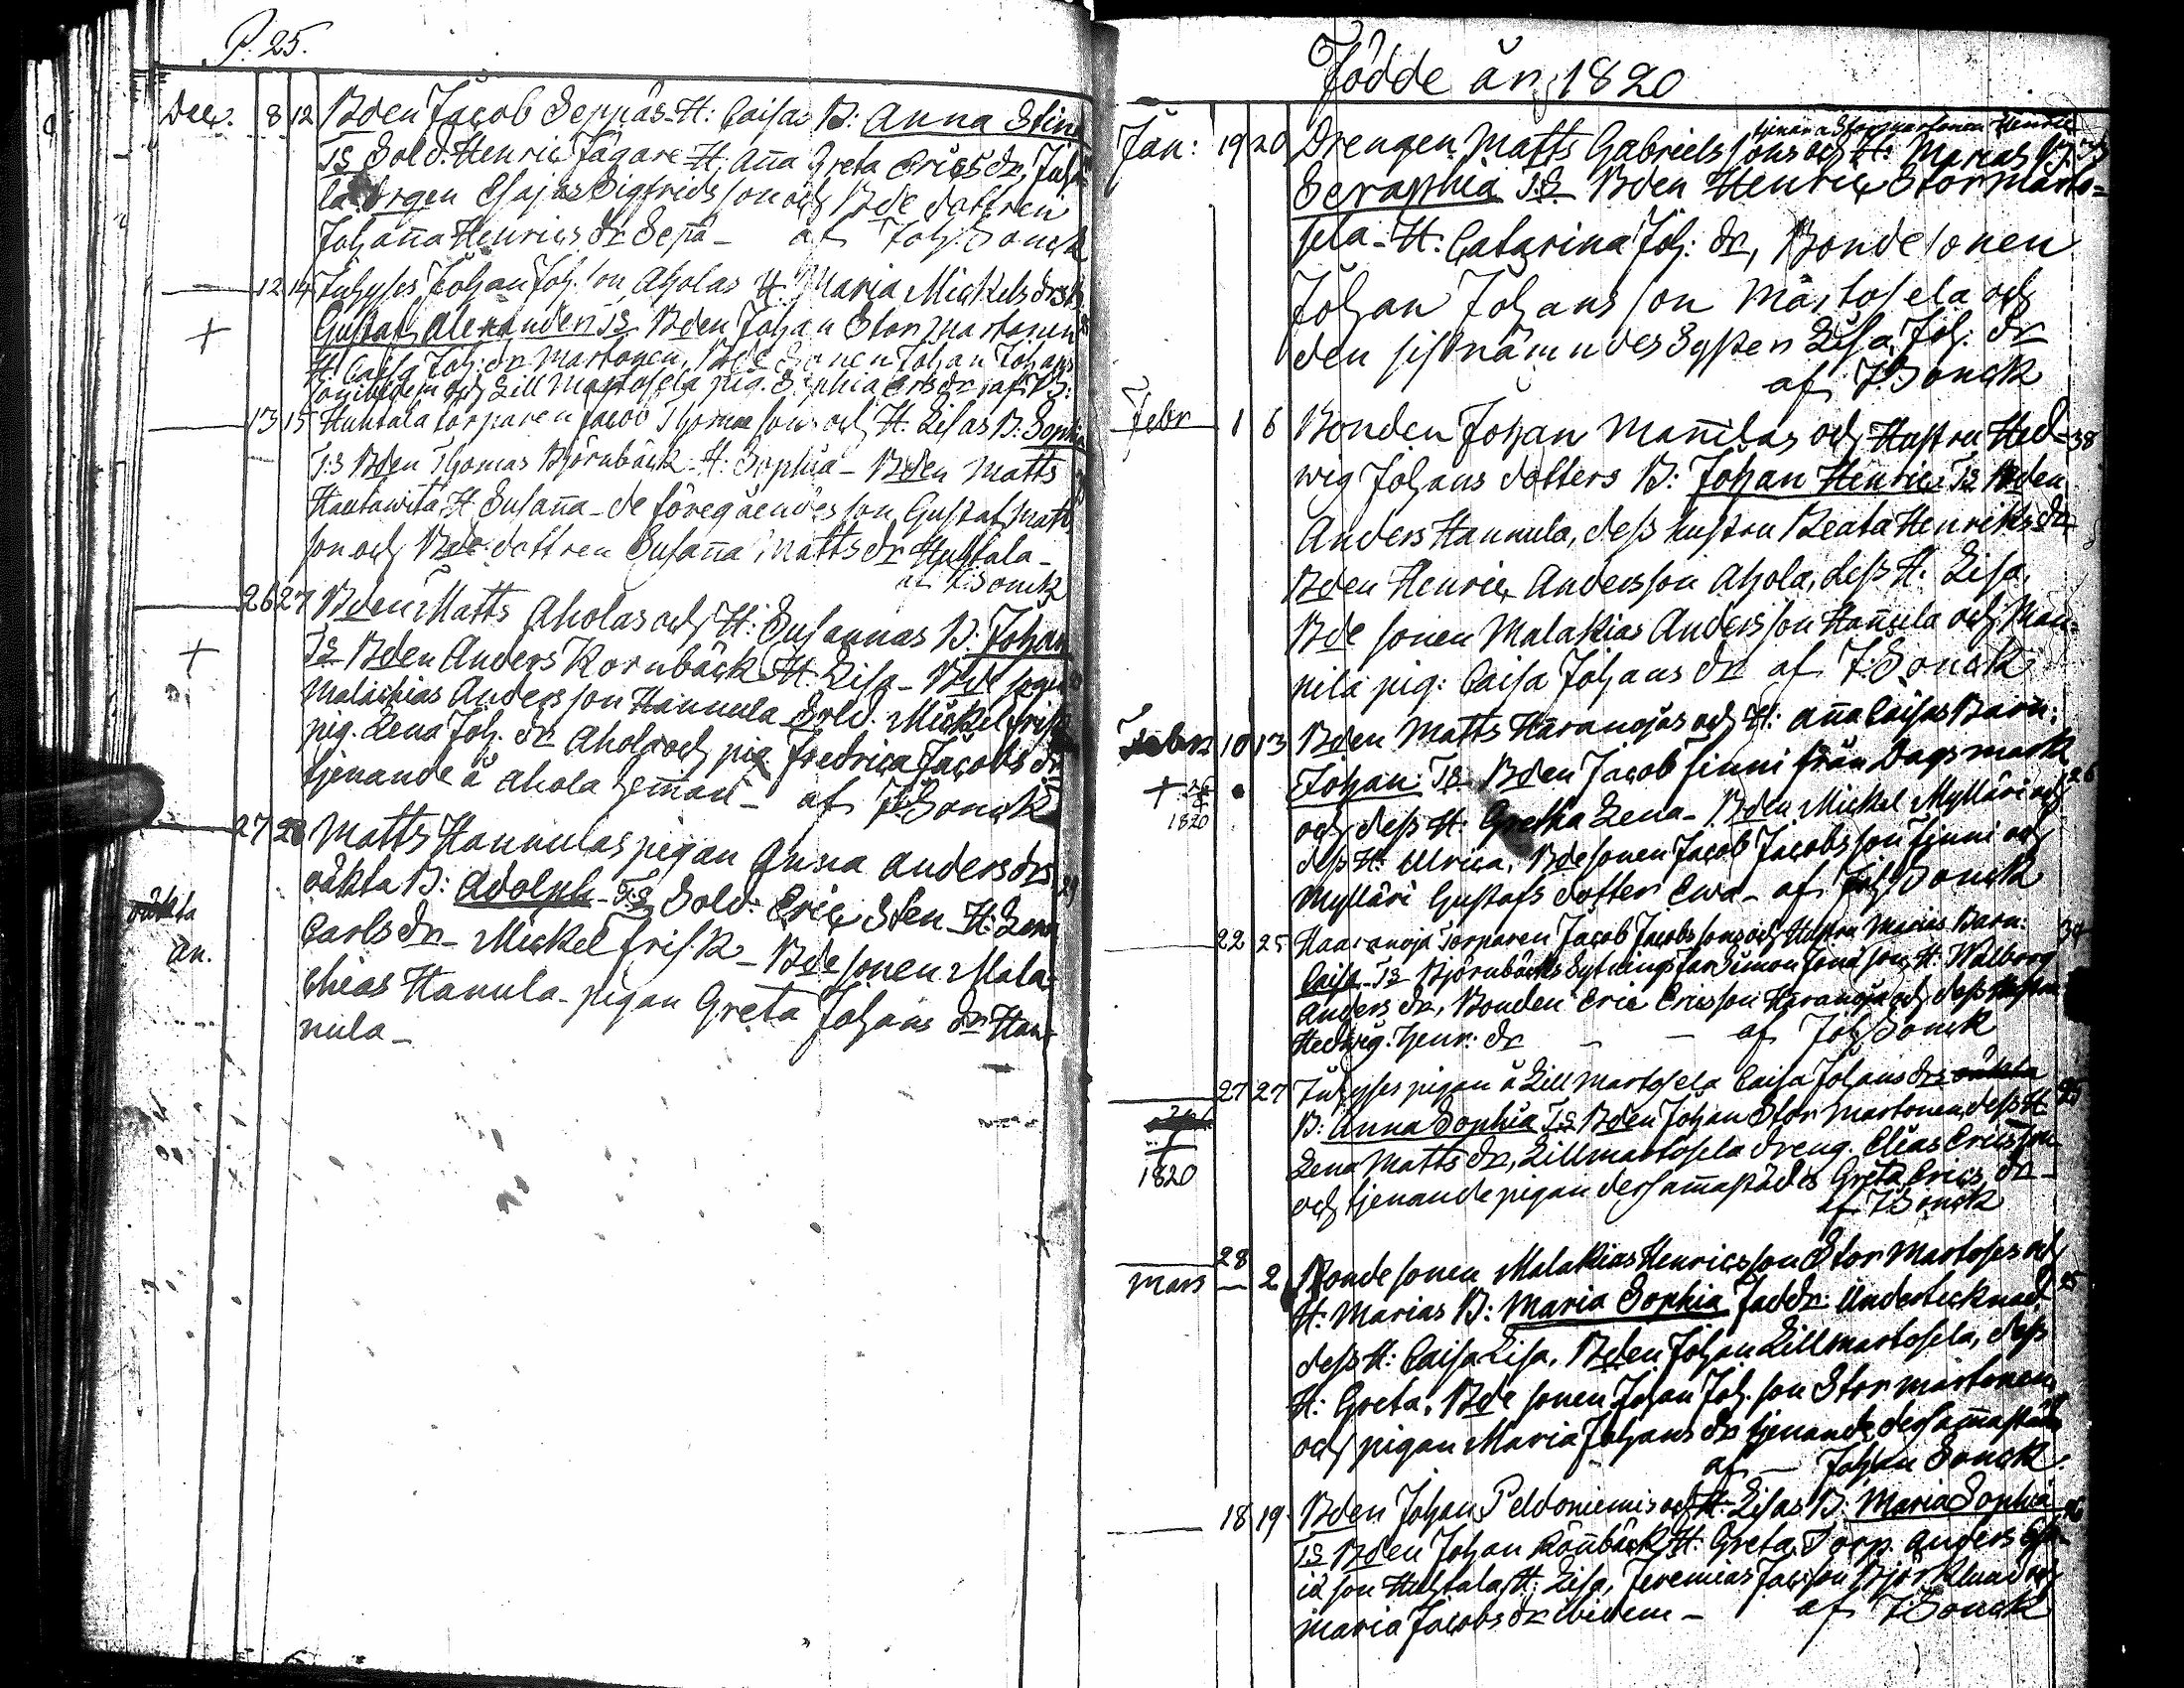 P. 25.
Dec. 8 12 Bden Jacob Seppäs H: Caisas B: Anna Stina
TS Sold. Henric Jägare H. Aña Greta Erics dr,
drgen Esajas Sigfrids son och Bde dottren
Johaña Henrics dr Sepä - af Joh. Sonck
12 14 Inhyses Johan Joh. son Aholas H. Maria Mickels drs B.
+ Gustaf Alexander TS Bden Johan Stor martonen
H. Caisa Joh. dr Martonen, Bde Sonen Johan Johans
son ibidem och Lill Martosela pig. Sophia Ers dr af
13 15 Huhtala torparen Jacob Thomae sons och H. Lisas B: Sophia
T.S Bden Thomas Björnbäck H: Sophia - Bden Matts
Hautawita H Susaña - de föregåendes son Gustaf Matts
son och Bde dottren Susaña Matts dr Huhtala -
af J: Sonck
26 27 Bden Matts Aholas och H: Susannas B: Johan
+ TS Bden Anders Kornbäck H. Lisa - Bde sonen
Malachias Andersson Hannula Sold. Mickel Frisk
pig. Lena Joh. dr Ahola och pig Fredrica Jacobs dr
tjenande å Ahola hem̃an - af J Sonck
27 28 Matts Hannulas pigan Anna Anders drs
oäkta B: Adolph - TS Sold: Eric Sten - H: Lena
oäkta Carls dr - Mickel Frisk - Bde sonen Mala-
an. chias Hanula - pigan Greta Johans dr Han-
nula -
Födde år 1820
tjenar a Stormartonen Henric
Jan: 19 20 Drengen Matts Gabriels sons och H: Marias B:
Seraphia T.S. Bden Henric Stormarto-
sela - H: Catarina Joh: dr, Bonde sonen
Johan Johans son Martosela och
den sistnämndes Syster Lisa Joh. dr
af J Sonck
Febr 1 6 Bonden Johan Mañilas och Hustru Hed- 38
wig Johans dotters B: Johan Henric TS Bden
Anders Hannula, dess hustru Beata Henriks dr
Bden Henric Andersson Ahola, dess H. Lisa,
Bde sonen Malakias Andersson Hañula och Mañ-
nila pig: Caisa Johans dr af J. Sonck
Febr 10 13 Bden Matts Haranojas och H: Aña Caisas Barn:
+ 1820 Johan TS Bden Jacob Finni från Dagsmark 26
och dess H: Gretha Lena - Bden Mickel Mylläri och
dess H: Ulrica, Bde sonen Jacob Jacobsson Finni och
Mylläri Gustafs dotter Ewa - af Joh Sonck
22 25 Haaranoja Torparen Jacob Jacobssons och Hustru Marias Barn: 34
Caisa - TS Björnbäcks Sytningsfar Simon Jonasson, H. Walborg
Anders dr, Bonden Eric Ericsson Haranoja och dess Hustru
Hedwig. Henr. dr - - af Joh Sonck
27 27 Inhyses pigan å Lill Martosela Caisa Johans drs oäkta 25
B: Anna Sophia TS Bden Johan Stor Martonen, dess H.
1820 Lena Matts dr, Lillmartosela dreng. Elias Ericsson
och tjenande pigan dersam̃astädes Greta Erics dr -
af J Sonck
28
Mars - 2 Bonde sonen Malakias Henricsson Stor Martoses och
H: Marias B: Maria Sophia Faddr: Undertecknad 25
dess H: Caisa Lisa, Bden Johan Lillmartosela, dess
H: Greta, Bde sonen Johan Joh. son Stor martonen,
och pigan Maria Johans dr tjenande dersam̃astädes
af - Johan Sonck.
18 19 Bden Johan Peldoniemis och H. Lisas B: Maria Sophia
TS Bden Johan Rönbäck H: Greta, Torp. Anders
son Huhtala H: Lisa, Jeremias Jacsson Björklund och
Maria Jacobs dr ibidem - af J Sonck